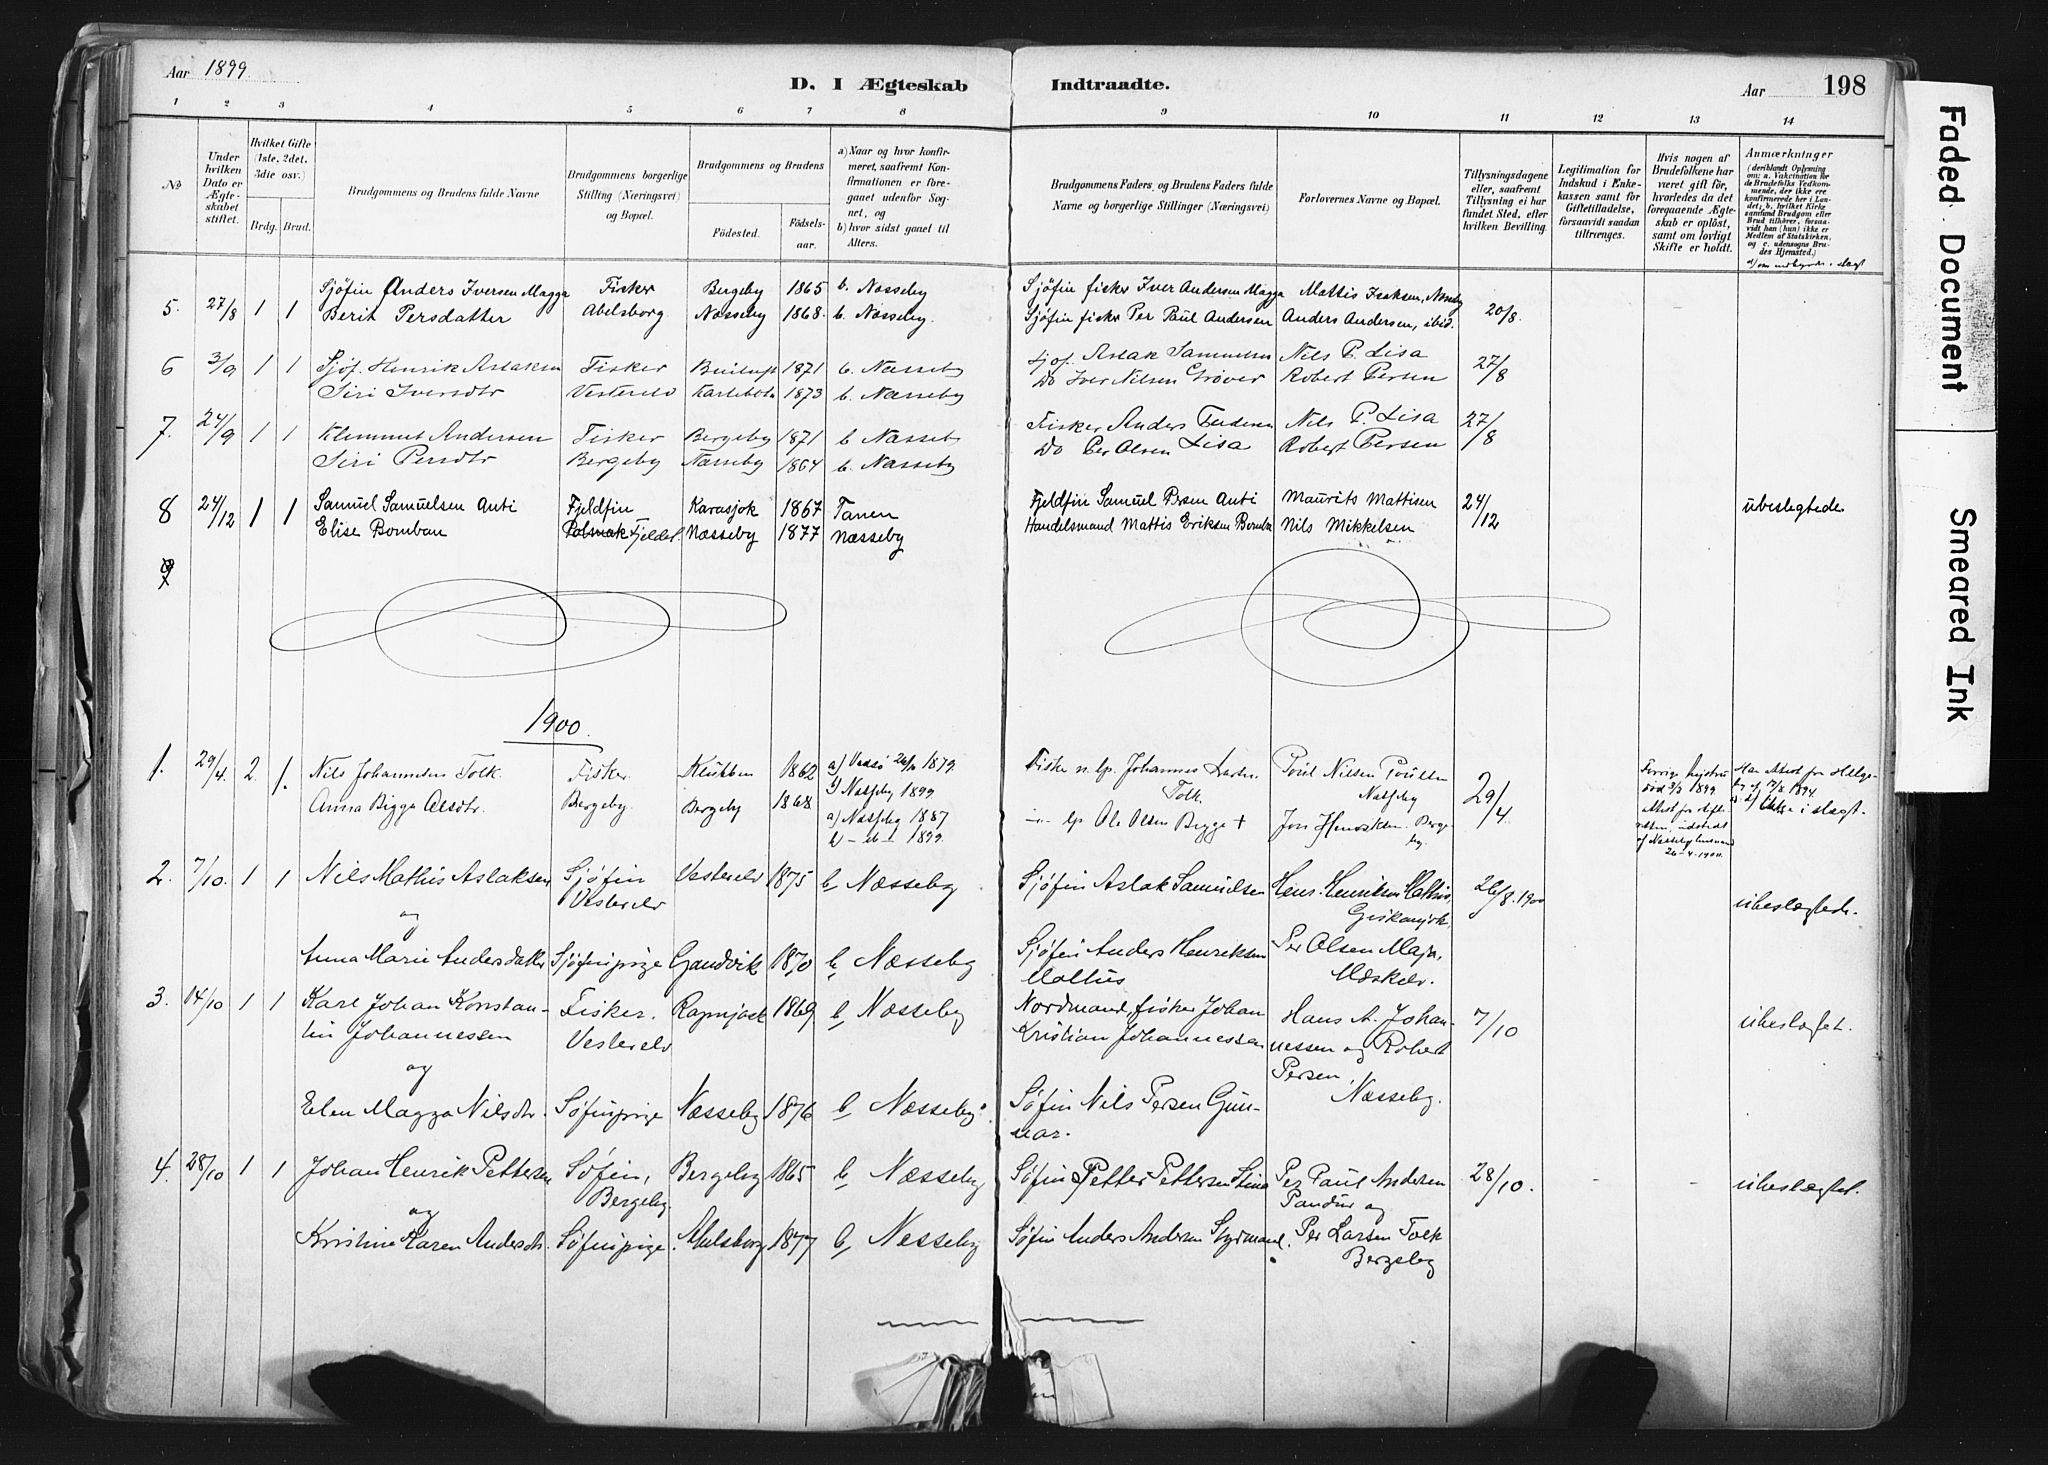 Aar 1899
D. I Ægteskab Indtraadte.
Aar 198
1 2 3 4 5 6 7 8 9 10 11 12 13 14
No
Under hvilken Dato er Ægteskabet stiftet.
Hvilket Gifte (1ste, 2det, 3die osv.)
Brdg. Brud.
Brudgommens og Brudens fulde Navne
Brudgommens borgerlige Stilling (Næringsvei) og Bopæl.
Brudgommens og Brudens
Fødested. Fødsels-aar.
a) Naar og hvor konfirmeret, saafremt Konfirmationen er foregaaet udenfor Sognet, og
b) hvor sidst gaaet til Alters.
Brudgommens Faders, og Brudens Faders fulde Navne og borgerlige Stillinger (Næringsvei)
Forlovernes Navne og Bopæl.
Tillysningsdagene eller, saafremt Tillysning ei har fundet Sted, efter hvilken Bevilling.
Legitimation for Indskud i Enkekassen samt for Giftetilladelse, forsaavidt saadan tiltrænges.
Hvis nogen af Brudefolkene har været gift før, hvorledes da det foregaaende Ægteskab er opløst, samt om lovligt Skifte er holdt.
Anmærkninger (deriblandt Oplysning om: a. Vaccination for de Brudefolks Vedkommende, der ikke ere konfirmerede her i Landet; b. hvilket Kirkesamfund Brudgom eller Brud tilhører, forsaavidt han (hun) ikke er Medlem af Statskirken, og c. udensogns Brudes Hjemsted.)
5. 27/8 1 1 Sjøfin Anders Iversen Magga Fisker Bergeby 1865 b. Næsseby Sjøfin fisker Iver Andersen Magga Mattis Isaksen, Næsseby 20/8.
Berit Persdatter Abelsborg Næsseby 1868. b. Næsseby. Sjøfin fisker Per Paul Andersen Anders Andersen, ibid.
6 3/9 1 1 Sjøf. Henrik Aslaksen Fisker 1871 b. Næsseby Sjøf. Aslak Samuelsen Nils P. Lisa 27/8
Siri Iversdtr Vesterelv 1873 b. Næsseby Do Iver Nilsen Grøver Robert Persen
7. 24/9 1 1 Klemmet Andersen Fisker Bergeby 1871 b Næsseby Fisker Anders Nils P. Lisa 27/8
Siri Persdtr Bergeby Næsseby 1864 b. Næsseby Do Per Olsen Lisa Robert Persen
8 24/12 1 1 Samuel Samuelsen Anti Fjeldfin Karasjok 1867 Tanen Fjeldfin Samuel Persen Anti Maurits Mattisen 24/12 ubeslegtede
Elise Bomban Polmak Fjelder. Næsseby 1877 Næsseby Handelsmand Mattis Eriksen Nils Mikkelsen
9
1900.
1. 29/4. 2. 1. Nils Johannesen Tolk. Fisker. Klubben 1862 a) Vadsø 1879. Johannes Larsen Tolk. Poul Nilsen Næsseby 29/4
b) Næsseby 1899
Anna Bigga Olsdtr. Bergeby. Bergeby 1868 a) Næsseby 1887 Ole Olsen Bigga + Jon Henriksen. Bergeby.
b – 1899.
2. 7/10. 1 1 Nils Mathis Aslaksen Sjøfin Vesterelv Vesterelv 1875 b Næsseby Sjøfin Aslak Samuelsen Henr. Henriksen Mathis, 26/8. 1900 ubeslægtede.
og
Anna Marie Andersdatter Sjøfinpige Gandvik 1870 b Næsseby Sjøfin Anders Henriksen Mathis Per Olsen Maja, Mæskelv.
3. 14/10 1 1 Karl Johan Konstantin Johannessen Fisker. Vesterelv 1869 b Næsseby Nordmand, fisker Johan Kristian Johannessen Hans A. Johannessen og Robert Persen, Næsseby. 7/10 ubeslægtet.
og
Elen Magga Nilsdtr. Søfinpige Næsseby 1876 b Næsseby. Søfin Nils Persen Gunnar.
4. 28/10 1 1 Johan Henrik Pettersen Søfin, Bergeby. Bergeby 1865 b Næsseby Søfin Petter Pettersen Stina Per Paul Andersen Pandur og 28/10. ubeslægtet.
og
Kristine Karen Andersdtr. Søfinpige. Abelsborg 1877 b Næsseby Søfin Anders Andersen Styrmand. Per Larsen Tolk Bergeby
Faded Document
Smeared Ink